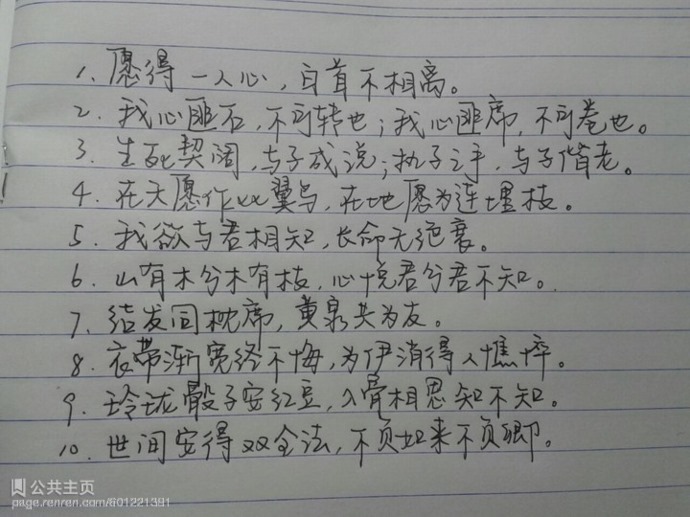 1. 愿得一人心，白首不相离。
2. 我心匪石，不可转也；我心匪席，不可卷也。
3. 生死契阔，与子成说；执子之手，与子偕老。
4. 在天愿作比翼鸟，在地愿为连理枝。
5. 我欲与君相知，长命无绝衰。
6. 山有木兮木有枝，心悦君兮君不知。
7. 结发同枕席，黄泉共为友。
8. 衣带渐宽终不悔，为伊消得人憔悴。
9. 玲珑骰子安红豆，入骨相思知不知。
10. 世间安得双全法，不负如来不负卿。
公共主页
page.renren.com/601221391